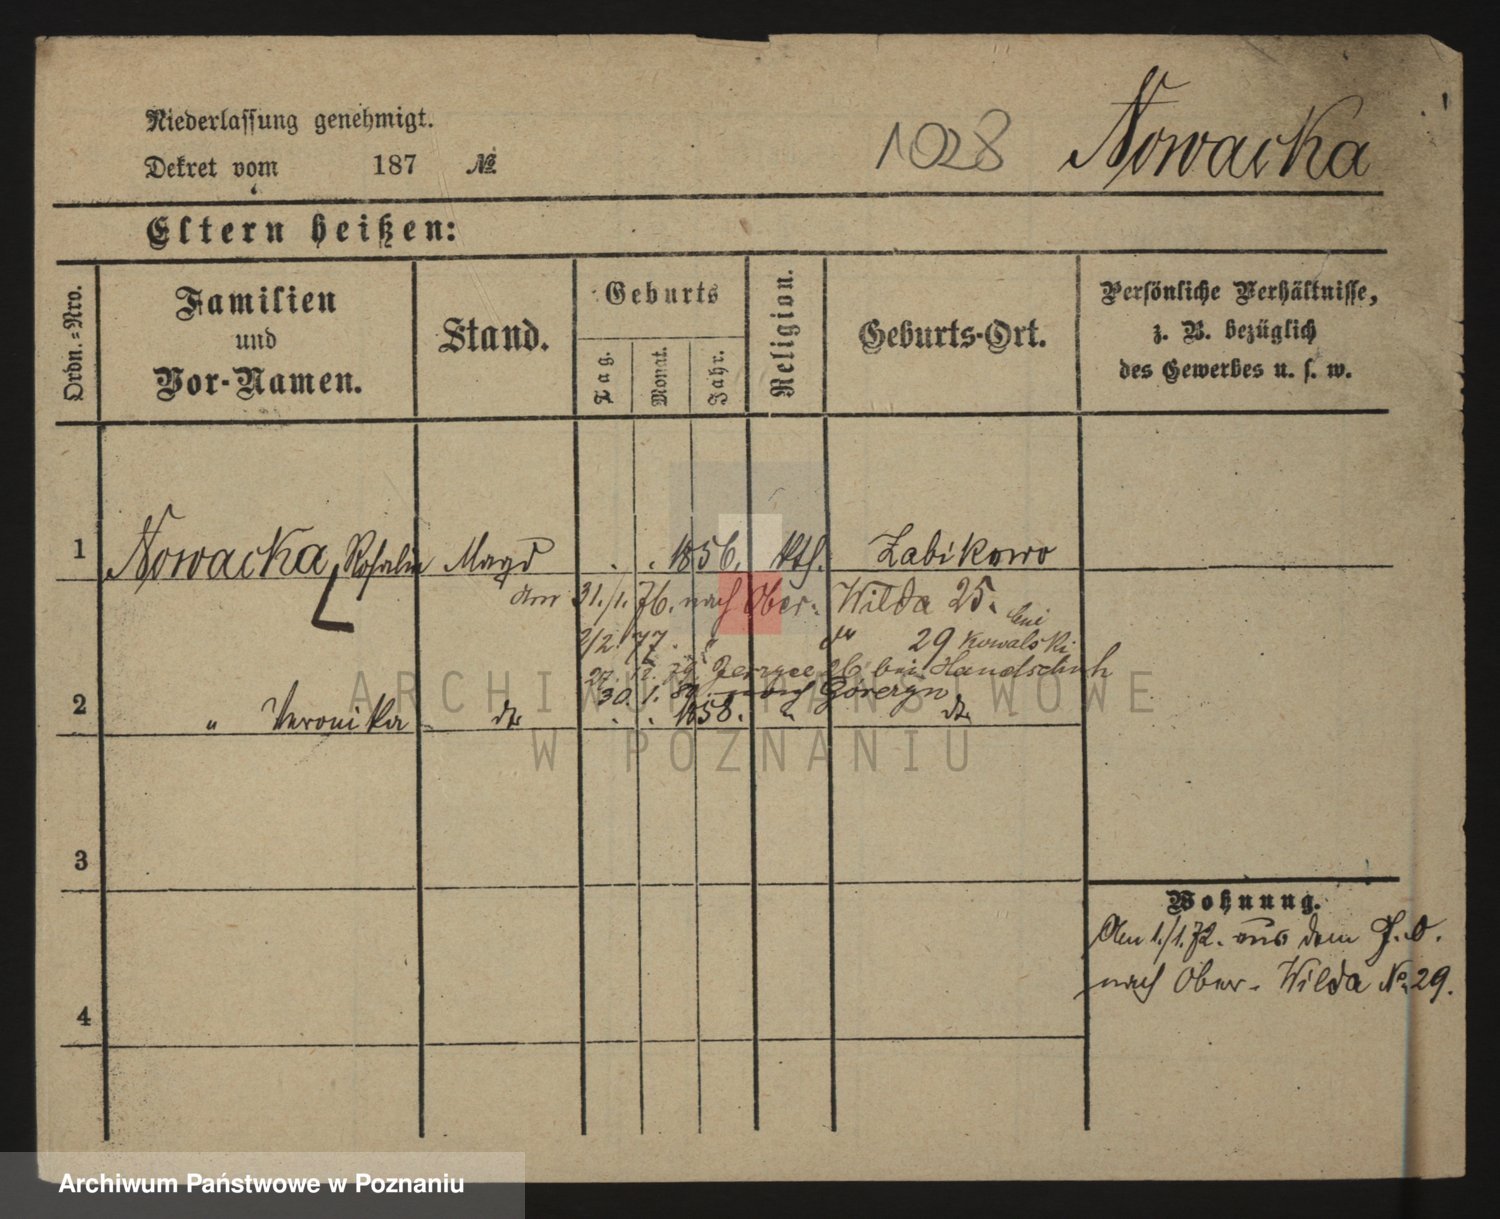 Niederlassung genehmigt.
Dekret vom 187 №
1028 Nowacka
Eltern heißen:
Ordn.-Nro.
Familien
und
Vor-Namen.
Stand.
Geburts
Tag.
Monat.
Jahr.
Religion.
Geburts-Ort.
Persönliche Verhältnisse,
z. B. bezüglich
des Gewerbes u. s. w.
1 Nowacka, Rosalie Magd . . 1856. kth. Zabikowo
am 31./1. 76. nach Ober- Wilda 25.
2/2. 77. " " 29 bei Kowalski
27. 12. 79 Jerzyce 26 bei Handschuh
30. 1. 80. nach Gorczyn
2 " Veronika dto . . 1858. " dto
3
4
Wohnung.
Am 1./1. 72. aus dem J. O.
nach Ober- Wilda No 29.
ARCHIWUM PAŃSTWOWE
W POZNANIU
Archiwum Państwowe w Poznaniu